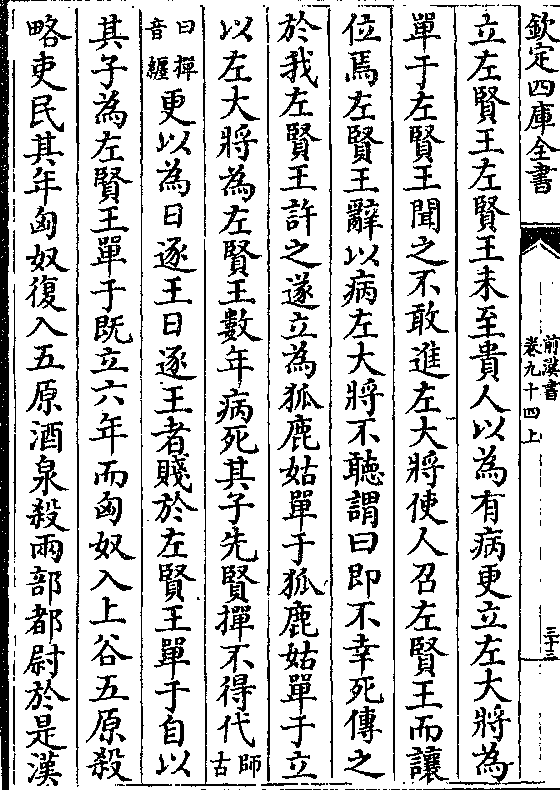 欽定四庫全書
前漢書
卷九十四上
三十三
立左賢王左賢王未至貴人以為有病更立左大將為
單于左賢王聞之不敢進左大將使人召左賢王而讓
位焉左賢王辭以病左大將不聽謂曰即不幸死傳之
於我左賢王許之遂立為狐鹿姑單于狐鹿姑單于立
以左大將為左賢王數年病死其子先賢撣不得代師古
曰撣音纏更以為日逐王日逐王者賤於左賢王單于自以
其子為左賢王單于既立六年而匈奴入上谷五原殺
略吏民其年匈奴復入五原酒泉殺兩部都尉於是漢